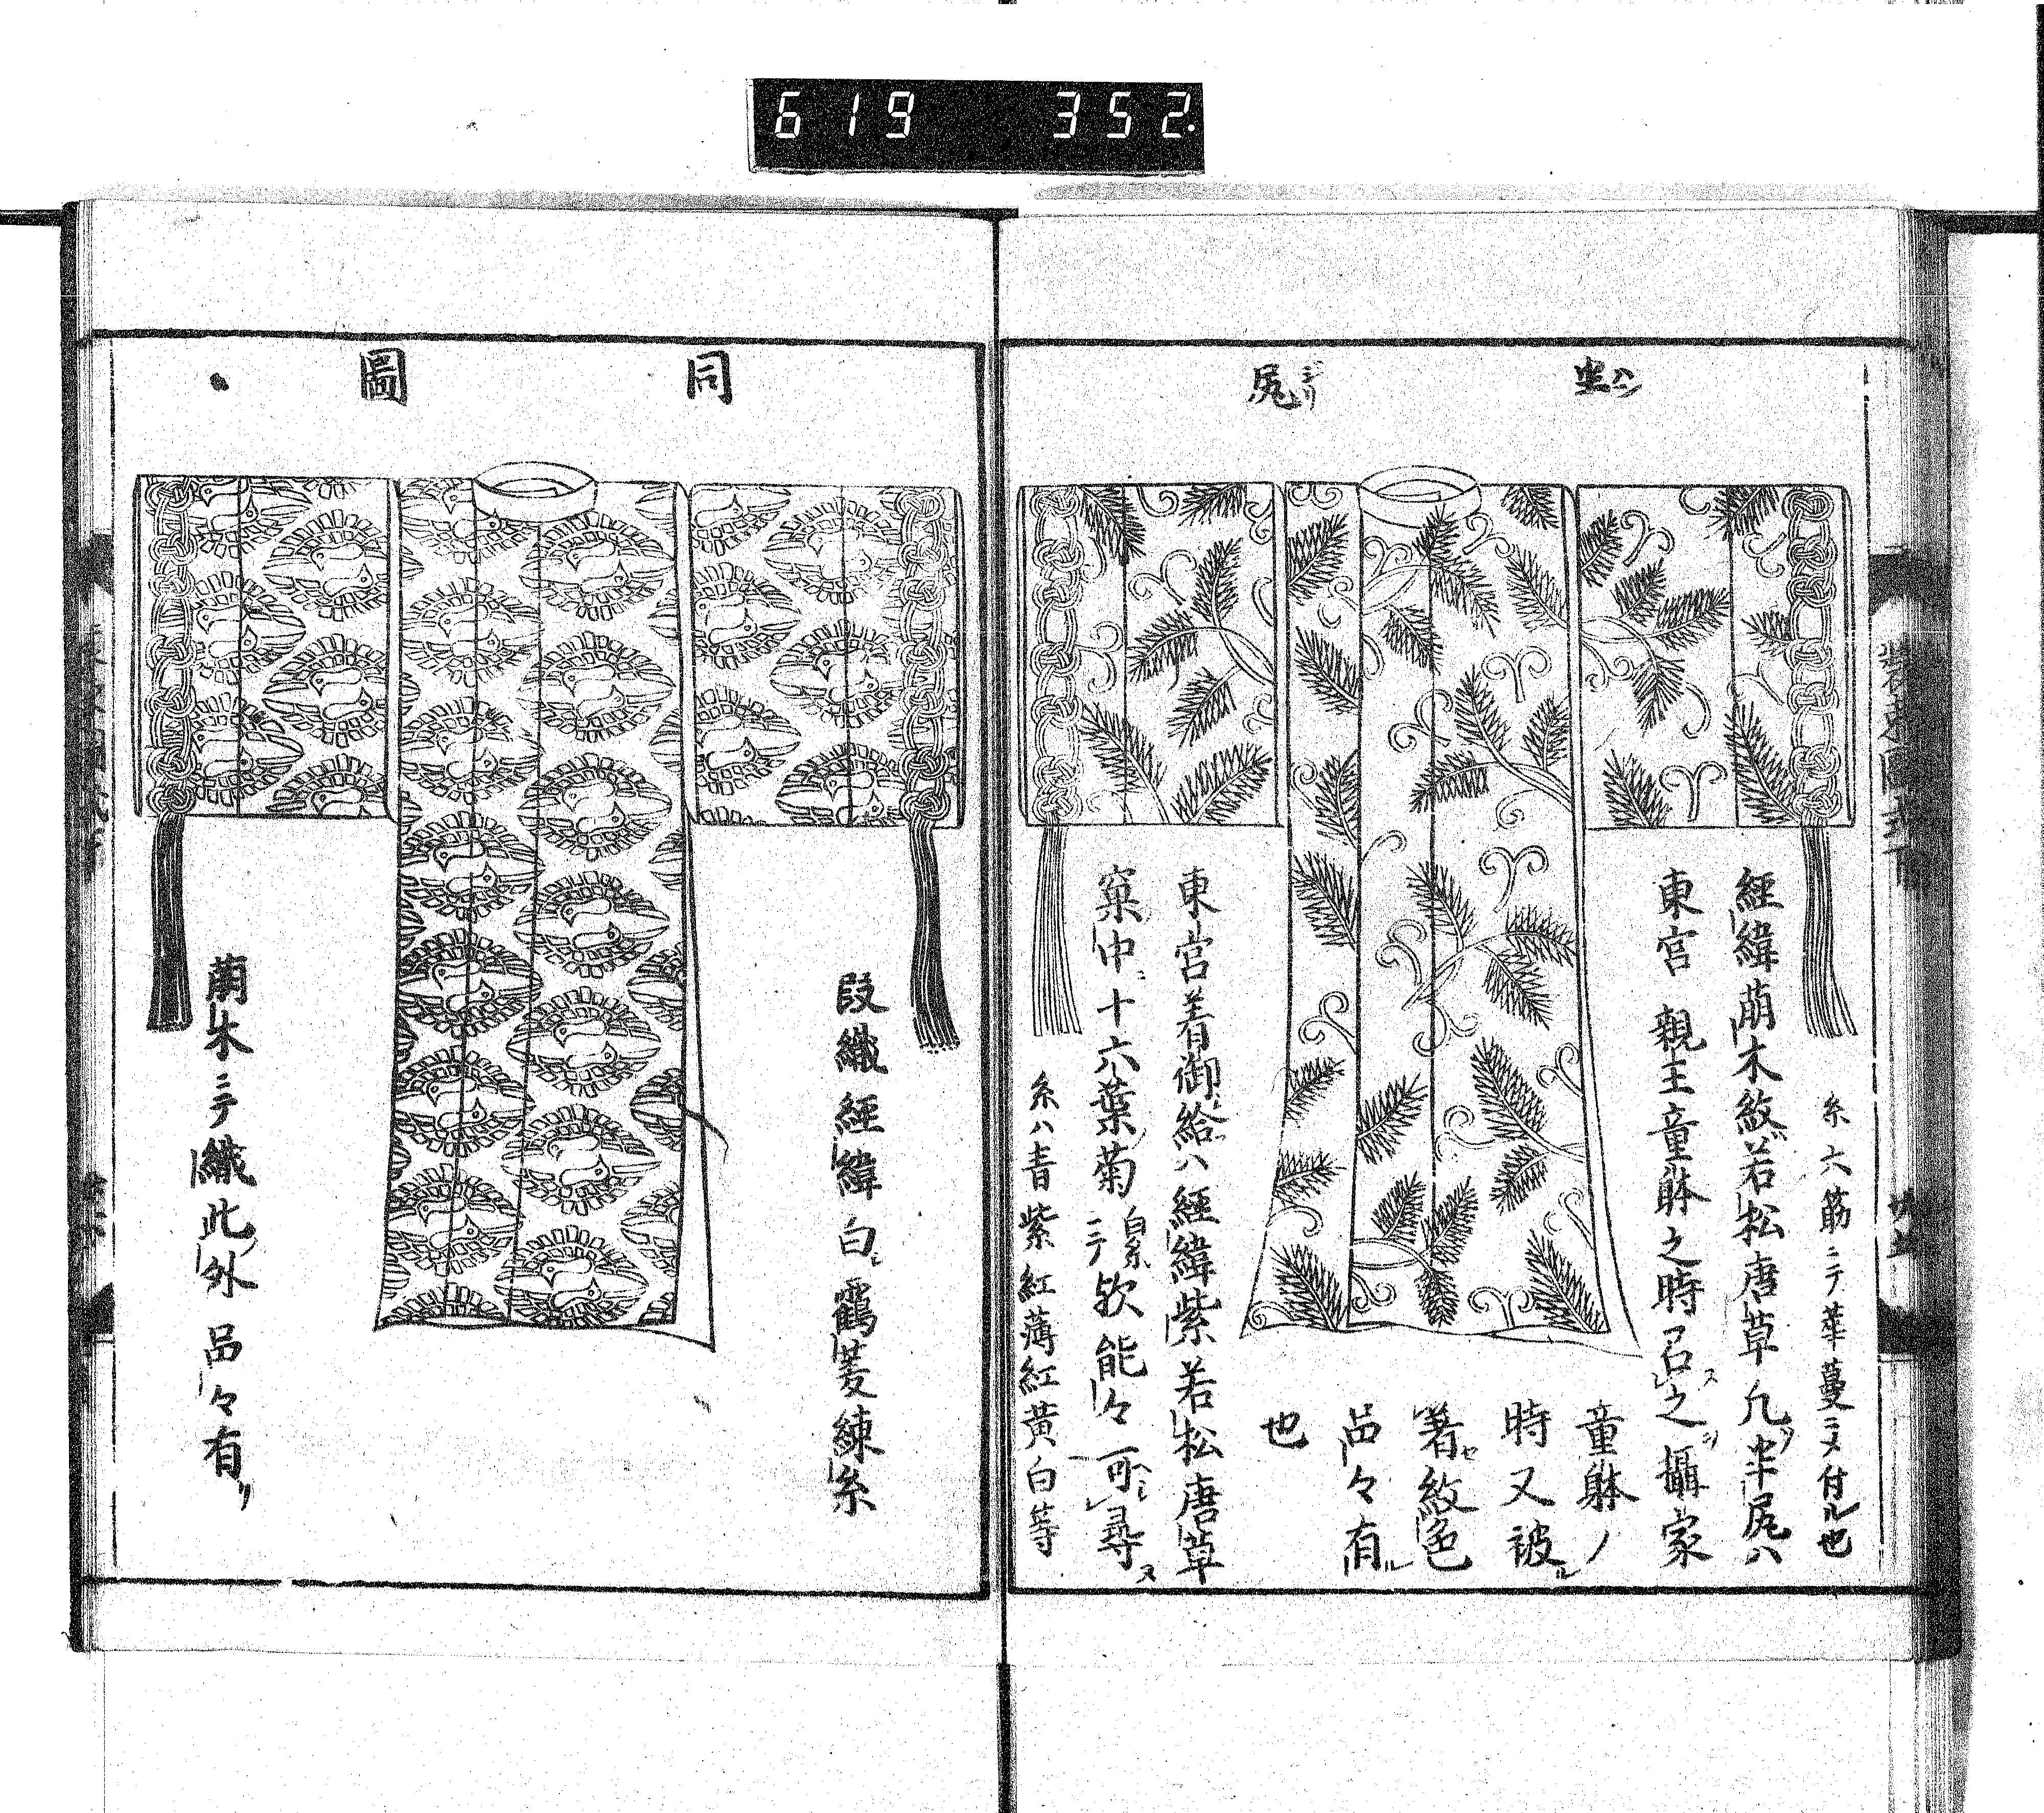 619 352
半ハン 尻ジリ
糸六筋ニテ華蔓ニメ付ル也
經緯萠木紋若松唐草凡ソ半尻ハ
東宮 親王童躰之時召ス之ヲ攝家
童躰ノ
時又被ル
著セ紋色
品々有ル
也
東宮着御ノ給ハ經緯紫若松唐草
窠中ニ十六葉菊白糸ニテ欤能々可シ尋ヌ
糸ハ青紫紅薄紅黄白等
同 圖
段織經緯白ニ鶴菱練糸
萠木ニテ織此外品々有リ